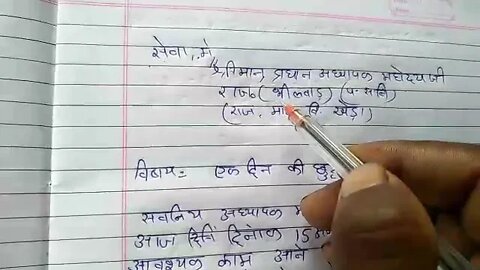 सेवा, में
श्रीमान् प्रधान अध्यापक महोदय जी
राज० (भीलवाड़) (प. सवि)
(राज. मा. वि. खेड़ा)
विषय:- एक दिन की छु
सवनिय अध्यापक म
आज दिनांक 15 अग
आवश्यक काम आने